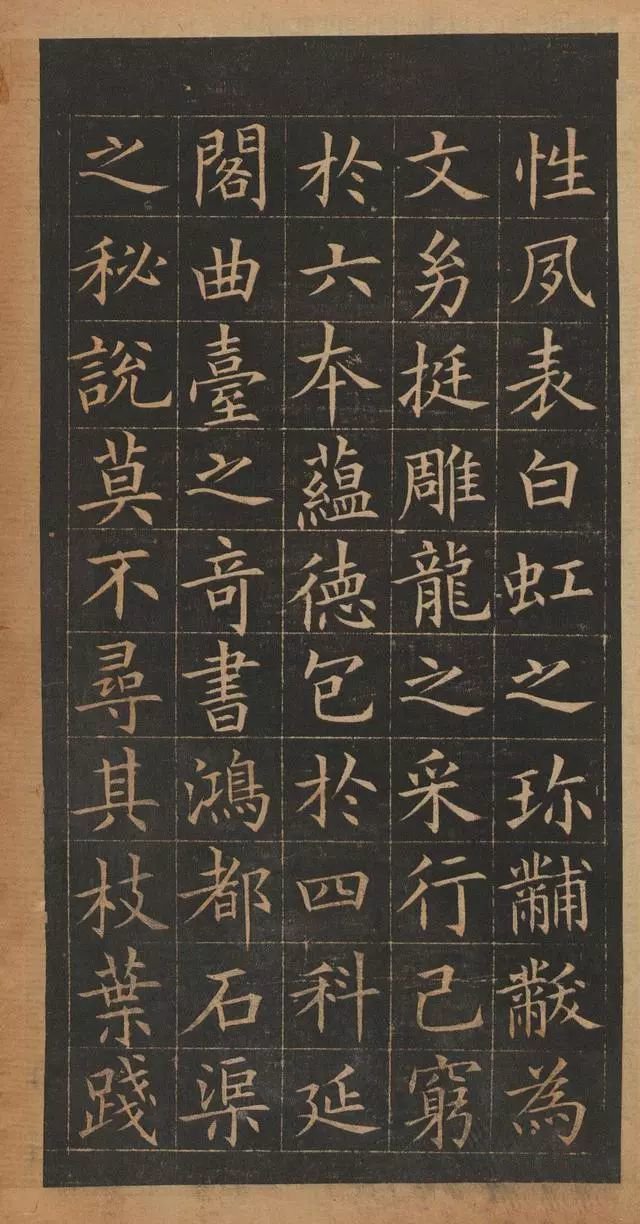 性夙表白虹之珍黼黻為
文幼挺雕龍之采行己窮
於六本蘊德包於四科延
閣曲臺之奇書鴻都石渠
之秘說莫不尋其枝葉踐